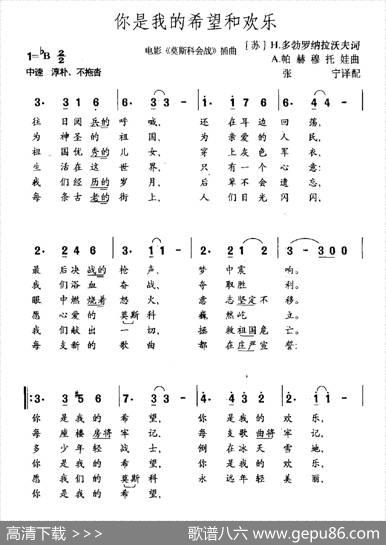 你是我的希望和欢乐
电影《莫斯科会战》插曲
[苏] H.多勃罗纳拉沃夫词
A.帕赫穆托娃曲
张宁译配
1=♭B 2/2
中速 淳朴、不拖沓
3· 3 1 6 | 6· 3 3 - | 3· 3 2 1 | 3 1 2 - |
往日阅兵的呼喊, 还在耳边回荡,
为神圣的祖国, 为亲爱的人民,
祖国优秀的儿女, 穿上灰色军衣,
生活在这世界, 只有一个心意:
我们经历的岁月, 后辈不会遗忘,
每条古老的街上, 人们目光闪闪,
2· 2 4 6 | 4· 3 3 - | 3· 3 1 1 | 3 - 3 0 0 |
最后决战的枪声, 梦中震响。
我们浴血奋战, 夺取胜利。
眼中燃烧着怒火, 意志坚定不移。
愿心爱的莫斯科巍然屹立。
我们献出一切, 拯救祖国危亡。
每支新的歌曲都在庄严宣誓:
3· 3 ♯5 6 | 7· 3 3 - | 4· 4 3 2 | 0 4 2 1 - |
你是我的希望, 你是我的欢乐,
每座楼房将牢记, 每支歌曲将牢记,
多少年轻战士, 倒在冰天雪地,
你是我的希望, 你是我的欢乐,
愿我们的莫斯科永远年轻美丽,
你是我的希望,
高清下载 ▷▷▷
歌谱八六 www.gepu86.com